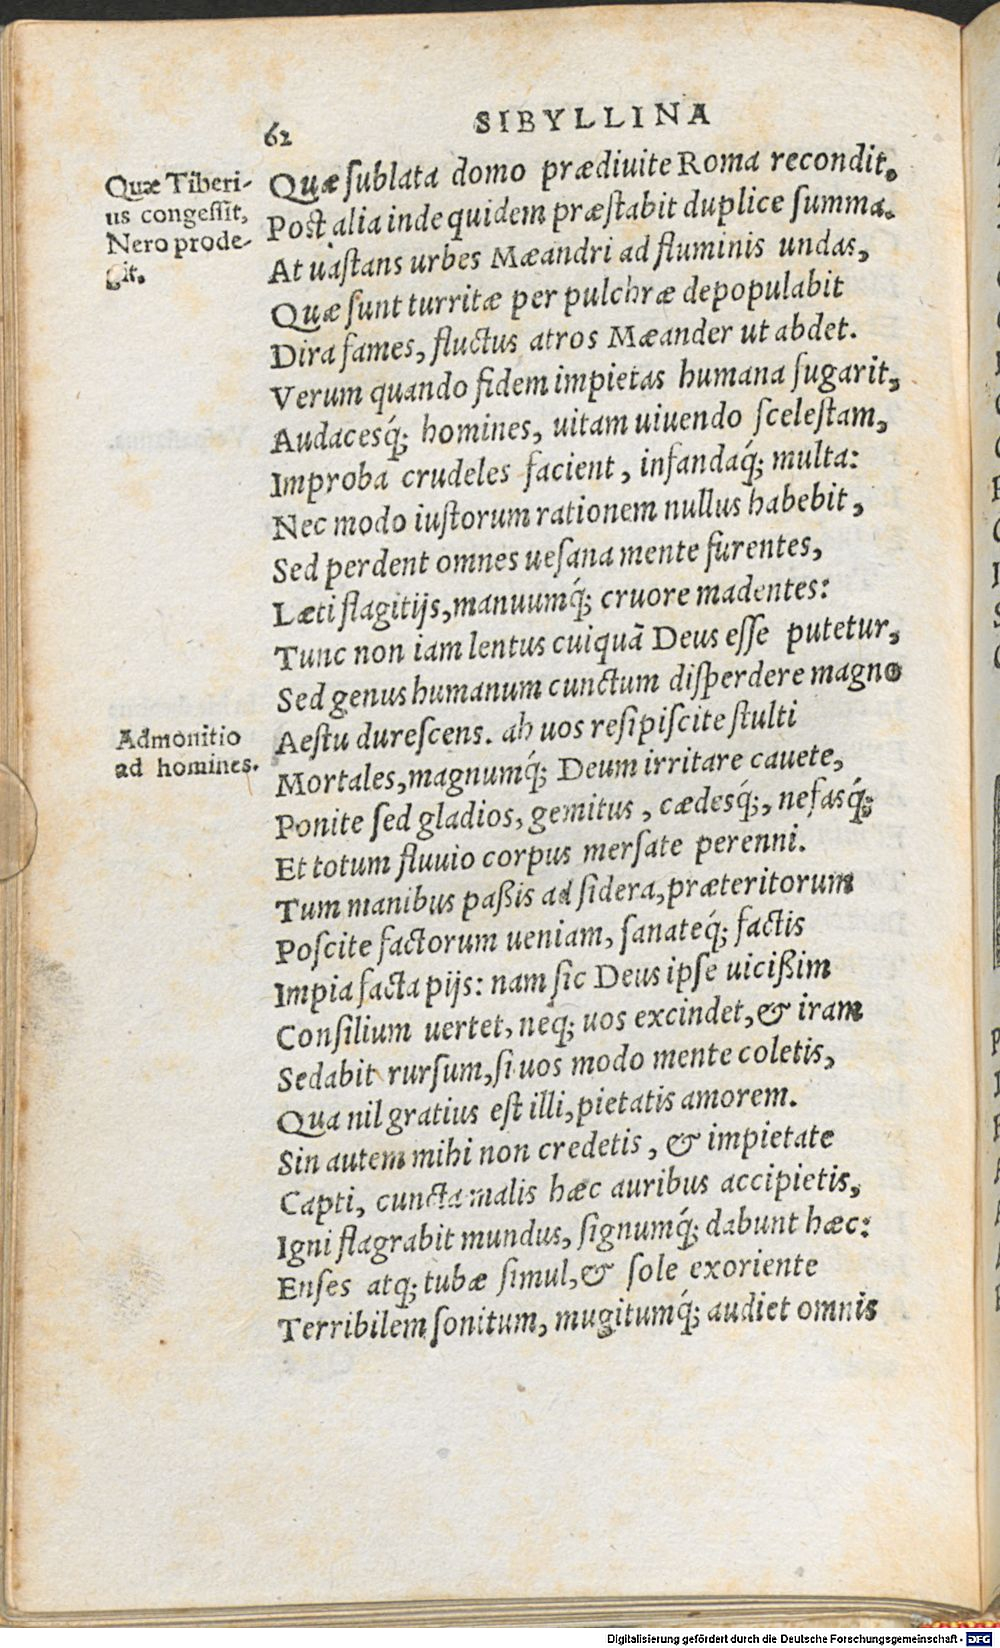 62 SIBYLLINA
Quæ Tiberi-
us congeſſit,
Nero prode-
git.
Quæ ſublata domo prædiuite Roma recondit.
Poſt alia inde quidem præſtabit duplice ſumma.
At uaſtans urbes Mæandri ad fluminis undas,
Quæ ſunt turritæ per pulchræ depopulabit
Dira fames, fluctus atros Mæander ut abdet.
Verum quando fidem impietas humana fugarit,
Audacesq́; homines, uitam uiuendo ſceleſtam,
Improba crudeles facient, infandaq́; multa:
Nec modo iuſtorum rationem nullus habebit,
Sed perdent omnes ueſana mente furentes,
Læti flagitijs, manuumq́; cruore madentes:
Tunc non iam lentus cuiquã Deus eſſe putetur,
Sed genus humanum cunctum diſperdere magno
Admonitio
ad homines.
Aeſtu dureſcens. ah uos reſipiſcite ſtulti
Mortales, magnumq́; Deum irritare cauete,
Ponite ſed gladios, gemitus, cædesq́;, nefasq́;
Et totum fluuio corpus merſate perenni.
Tum manibus paßis ad ſidera, præteritorum
Poſcite factorum ueniam, ſanateq́; factis
Impia facta pijs: nam ſic Deus ipſe uicißim
Conſilium uertet, neq; uos excindet, & iram
Sedabit rurſum, ſi uos modo mente coletis,
Qua nil gratius eſt illi, pietatis amorem.
Sin autem mihi non credetis, & impietate
Capti, cuncta malis hæc auribus accipietis,
Igni flagrabit mundus, ſignumq́; dabunt hæc:
Enſes atq; tubæ ſimul, & ſole exoriente
Terribilem ſonitum, mugitumq́; audiet omnis
Digitalisierung gefördert durch die Deutsche Forschungsgemeinschaft - DFG